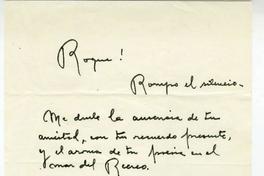 Roque!
Rompo el silencio.-
Me duele la ausencia de tu
amistad, con tu recuerdo presente,
y el aroma de tu poesía en el
mar del Recreo.